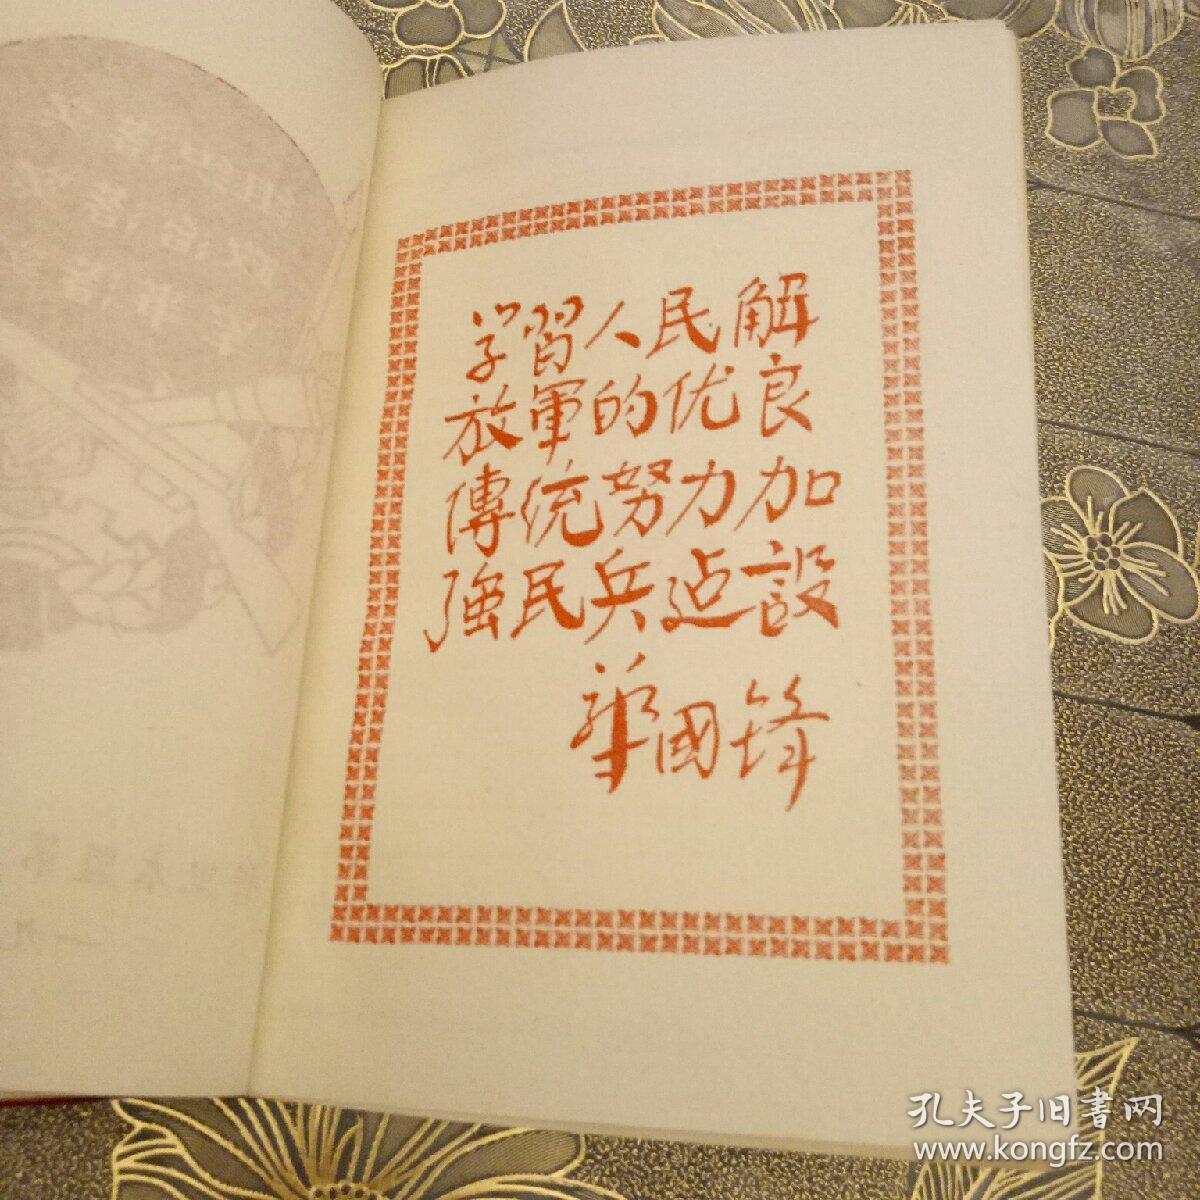 学習人民解
放軍的优良
傳统努力加
強民兵迠設
華國锋
孔夫子旧書网
www.kongfz.com